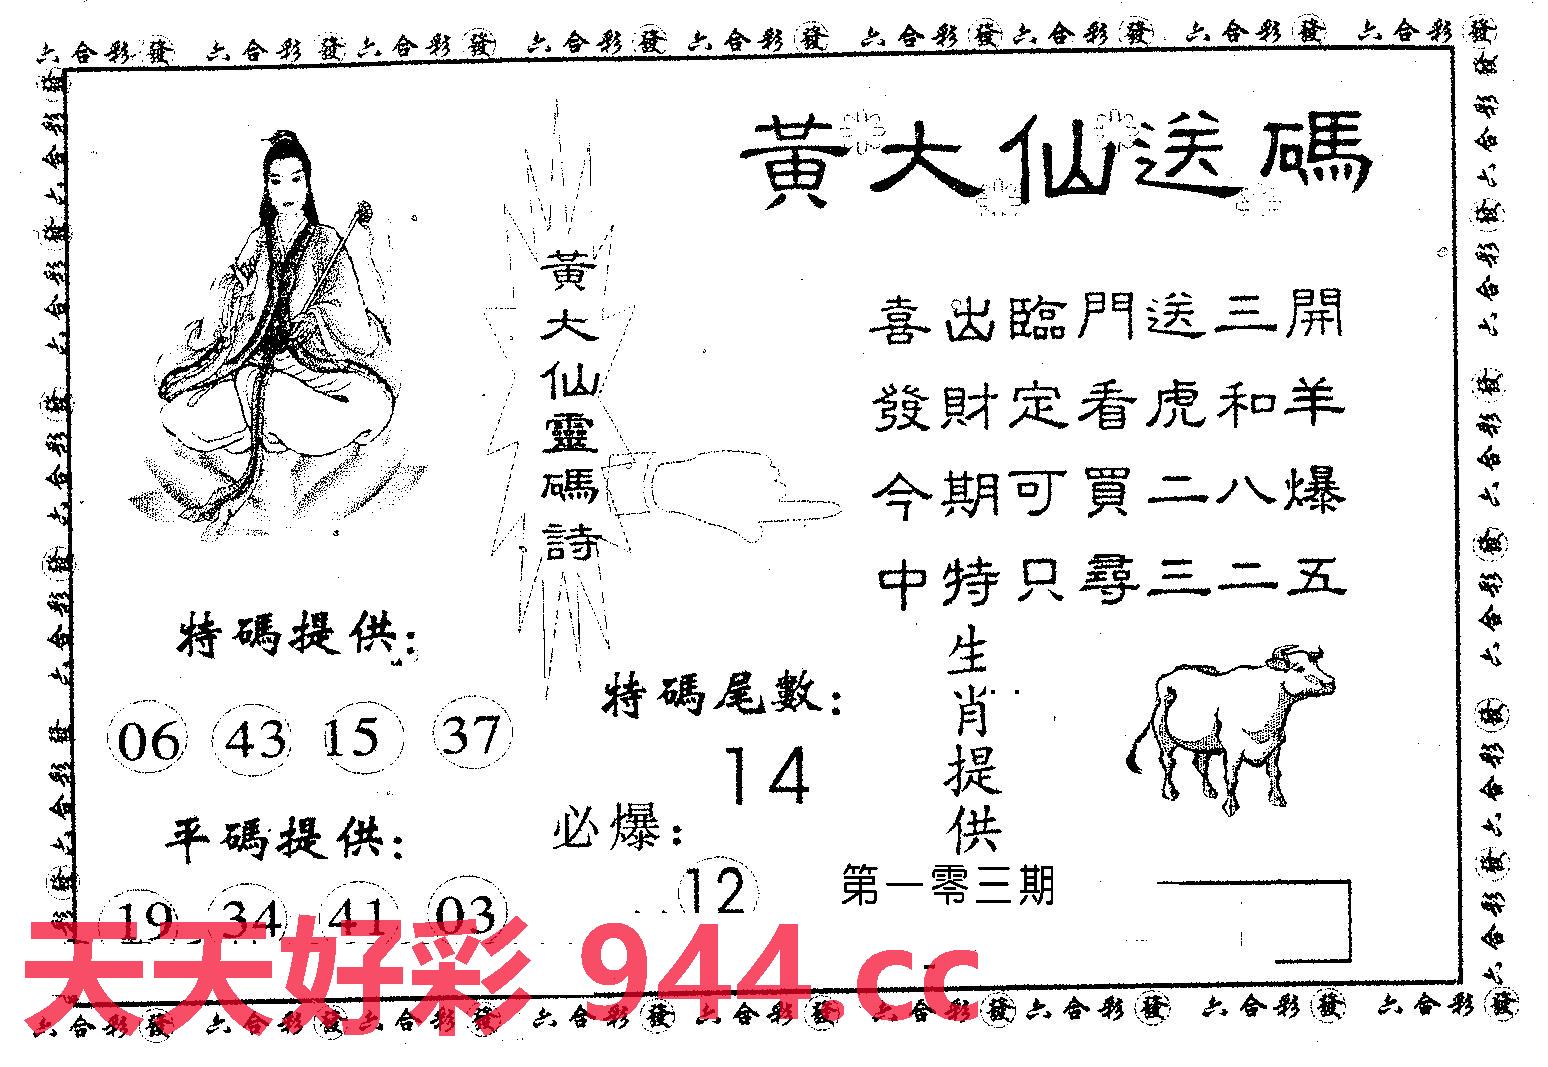 六合彩發 六合彩發 六合彩發 六合彩發 六合彩發 六合彩發 六合彩發 六合彩發 六合彩發
黃大仙送碼
黃大仙靈碼詩
喜出臨門送三開
發財定看虎和羊
今期可買二八爆
中特只尋三二五
特碼提供:
06 43 15 37
平碼提供:
19 34 41 03
特碼尾數:
14
必爆:
12
生肖提供
第一零三期
天天好彩 944.cc
六合彩發 六合彩發 六合彩發 六合彩發 六合彩發 六合彩發 六合彩發 六合彩發